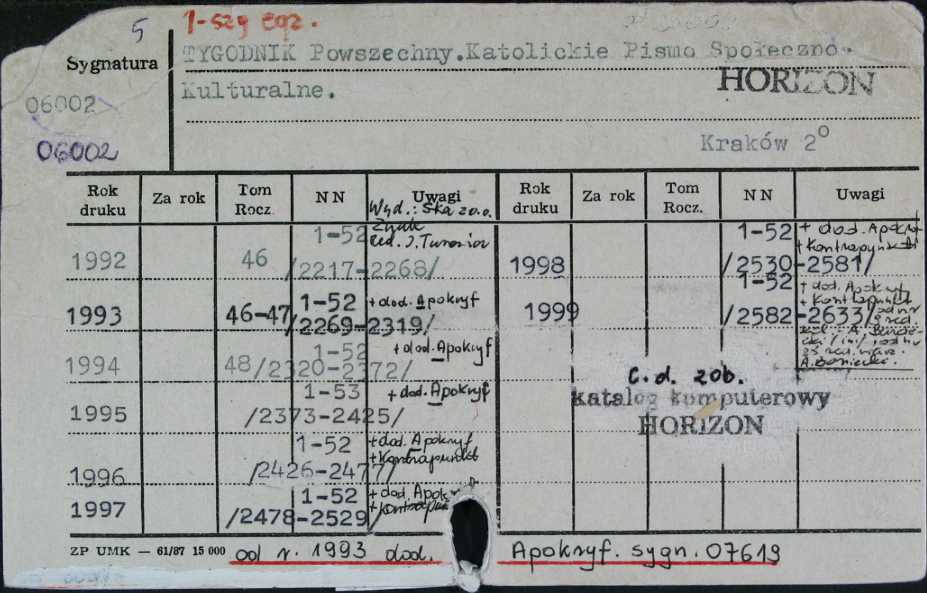 5 1-szy egz.
Sygnatura TYGODNIK Powszechny. Katolickie Pismo Społeczno-
Kulturalne. HORIZON
06002
06002 Kraków 2°
Rok druku Za rok Tom Rocz. N N Uwagi Rok druku Za rok Tom Rocz. N N Uwagi
Wyd.: Ska z o.o.
Znak
Red. J. Turowicz
1992 46 1-52 /2217-2268/ 1998 1-52 /2530-2581/ + dod. Apokryf + Kontrapunkt
1993 46-47 1-52 /2269-2319/ + dod. Apokryf 1999 1-52 /2582-2633/ + dod. Apokryf + Kontrapunkt
A. Boniecki.
1994 48 1-52 /2320-2372/ + dod. Apokryf
1995 1-53 /2373-2425/ + dod. Apokryf
1996 1-52 /2426-2477/ + dod. Apokryf + Kontrapunkt
1997 1-52 /2478-2529/ + dod.
c.d. zob.
katalog komputerowy
HORIZON
ZP UMK — 61/87 15 000 od r. 1993 dod. Apokryf. sygn. 07619